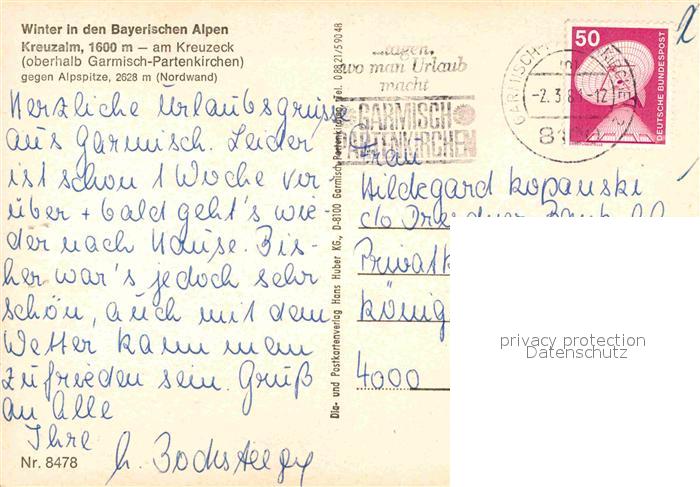 Winter in den Bayerischen Alpen
Kreuzalm, 1600 m – am Kreuzeck
(oberhalb Garmisch-Partenkirchen)
gegen Alpspitze, 2628 m (Nordwand)
Herzliche Urlaubsgrüsse
aus Garmisch. Leider
ist schon 1 Woche vor
über + bald geht's wie-
der nach Hause. Bis-
her war's jedoch sehr
schön, auch mit dem
Wetter kann man
zufrieden sein. Gruß
an Alle
Ihre
Nr. 8478
Dia- und Postkartenverlag Hans Huber KG., D-8100 Garmisch-Partenkirchen, Tel. 0 88 21/5 90 48
...tagen,
wo man Urlaub
macht
GARMISCH
PARTENKIRCHEN
GARMISCH
-2.3.8 -12
50
DEUTSCHE BUNDESPOST
Frau
Hildegard Kopanski
c/o Dresdner Bank AG
Privatk
König
4000
privacy protection
Datenschutz